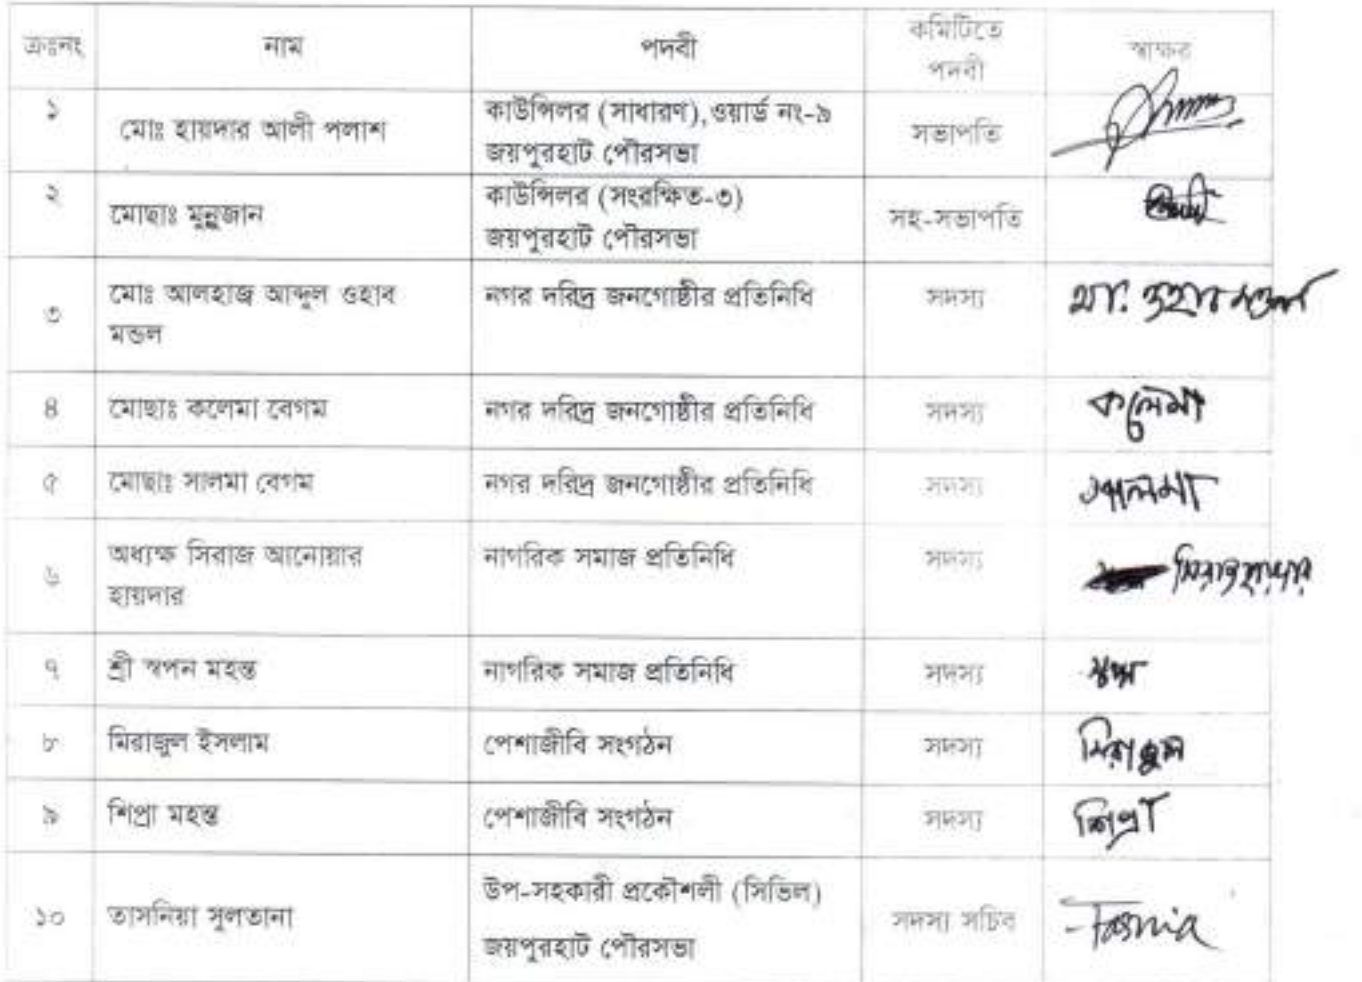 ক্রঃনং নাম পদবী কমিটিতে পদবী স্বাক্ষর
১ মোঃ হায়দার আলী পলাশ কাউন্সিলর (সাধারণ),ওয়ার্ড নং-৯ জয়পুরহাট পৌরসভা সভাপতি
২ মোছাঃ মুনুজান কাউন্সিলর (সংরক্ষিত-৩) জয়পুরহাট পৌরসভা সহ-সভাপতি
৩ মোঃ আলহাজ্ব আব্দুল ওহাব মন্ডল নগর দরিদ্র জনগোষ্ঠীর প্রতিনিধি সদস্য
৪ মোছাঃ কলেমা বেগম নগর দরিদ্র জনগোষ্ঠীর প্রতিনিধি সদস্য কলেমা
৫ মোছাঃ সালমা বেগম নগর দরিদ্র জনগোষ্ঠীর প্রতিনিধি সদস্য সালমা
৬ অধ্যক্ষ সিরাজ আনোয়ার হায়দার নাগরিক সমাজ প্রতিনিধি সদস্য
৭ শ্রী স্বপন মহন্ত নাগরিক সমাজ প্রতিনিধি সদস্য
৮ মিরাজুল ইসলাম পেশাজীবি সংগঠন সদস্য মিরাজুল
৯ শিপ্রা মহন্ত পেশাজীবি সংগঠন সদস্য শিপ্রা
১০ তাসনিয়া সুলতানা উপ-সহকারী প্রকৌশলী (সিভিল) জয়পুরহাট পৌরসভা সদস্য সচিব Tasnia